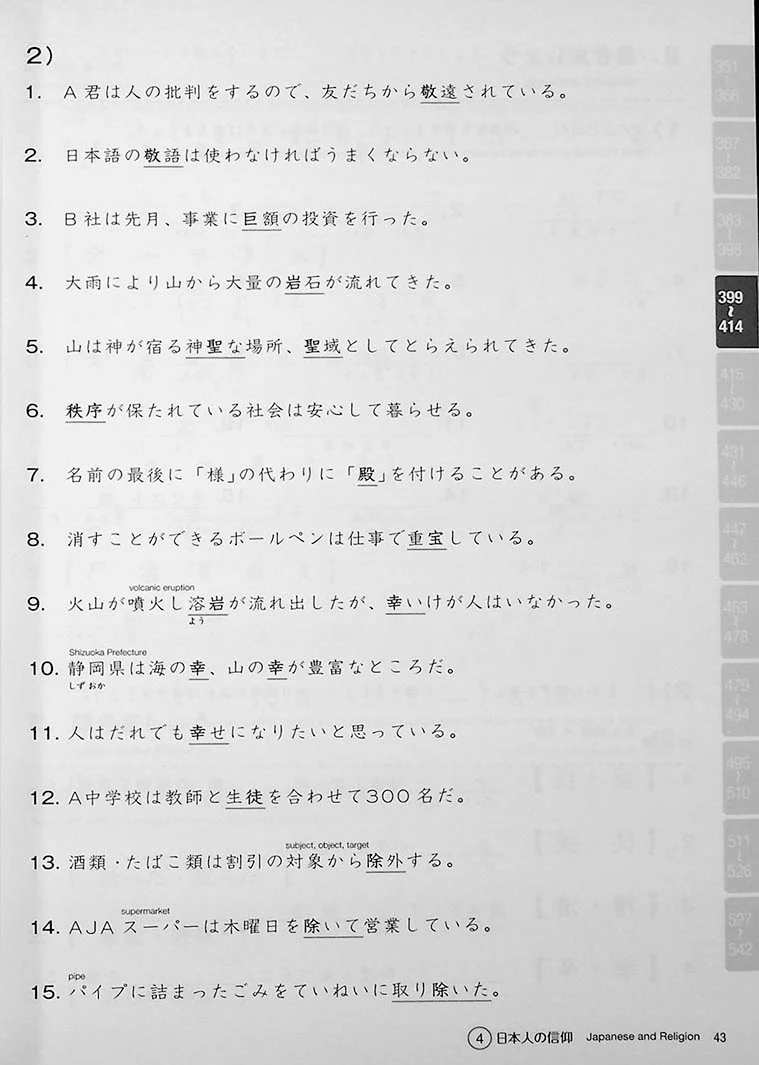 2)
1. A君は人の批判をするので、友だちから敬遠されている。
2. 日本語の敬語は使わなければうまくならない。
3. B社は先月、事業に巨額の投資を行った。
4. 大雨により山から大量の岩石が流れてきた。
5. 山は神が宿る神聖な場所、聖域としてとらえられてきた。
6. 秩序が保たれている社会は安心して暮らせる。
7. 名前の最後に「様」の代わりに「殿」を付けることがある。
8. 消すことができるボールペンは仕事で重宝している。
volcanic eruption
9. 火山が噴火し溶岩が流れ出したが、幸いけが人はいなかった。
よう
Shizuoka Prefecture
10. 静岡県は海の幸、山の幸が豊富なところだ。
しずおか
11. 人はだれでも幸せになりたいと思っている。
12. A中学校は教師と生徒を合わせて300名だ。
subject, object, target
13. 酒類・たばこ類は割引の対象から除外する。
supermarket
14. AJAスーパーは木曜日を除いて営業している。
pipe
15. パイプに詰まったごみをていねいに取り除いた。
4 日本人の信仰 Japanese and Religion 43
351
~
366
367
~
382
383
~
398
399
~
414
415
~
430
431
~
446
447
~
462
463
~
478
479
~
494
495
~
510
511
~
526
527
~
542